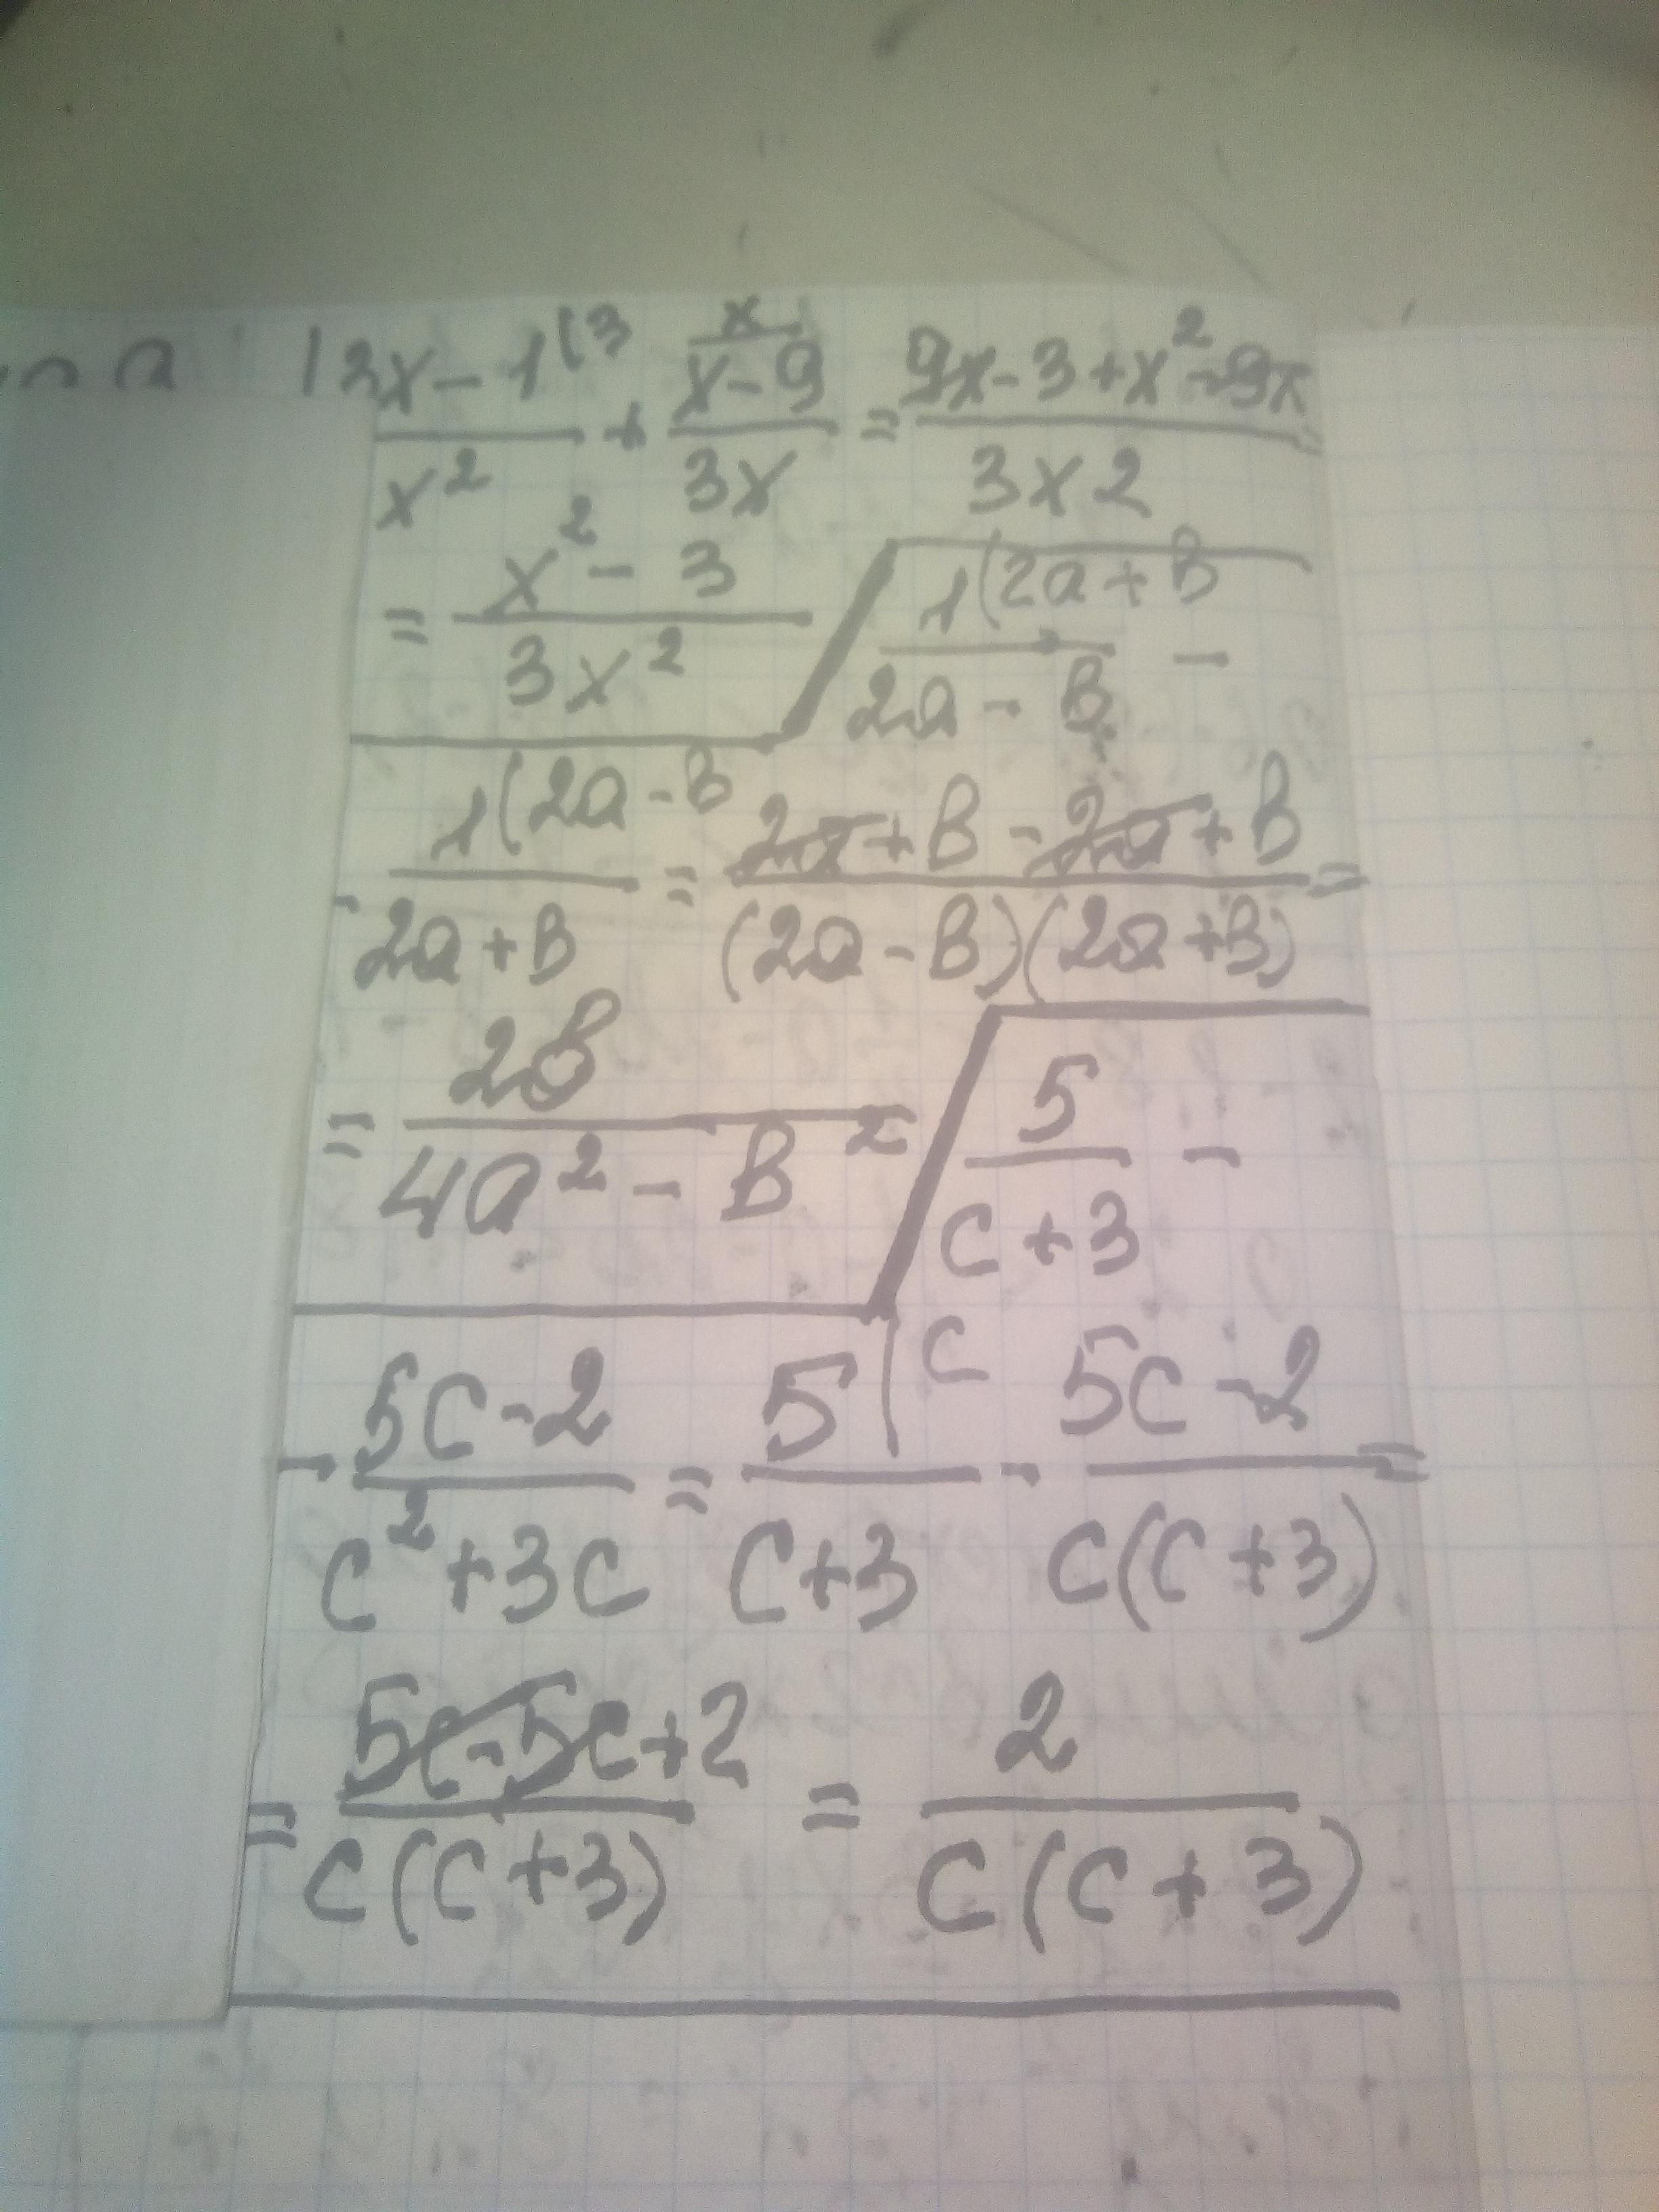 3x-1(3   x
x-9   9x-3+x²-9x
——— + ——— = ————————— =
x²   3x   3x2
= x²-3 / 3x²
1(2a+B
——— -
2a-B
- 1(2a-B / 2a+B = 2a+B-2a+B / (2a-B)(2a+B) =
= 2B / 4a²-B²
5 / c+3 -
- 5c-2 / c²+3c = 5(c / c+3 - 5c-2 / c(c+3) =
= 5c-5c+2 / c(c+3) = 2 / c(c+3)